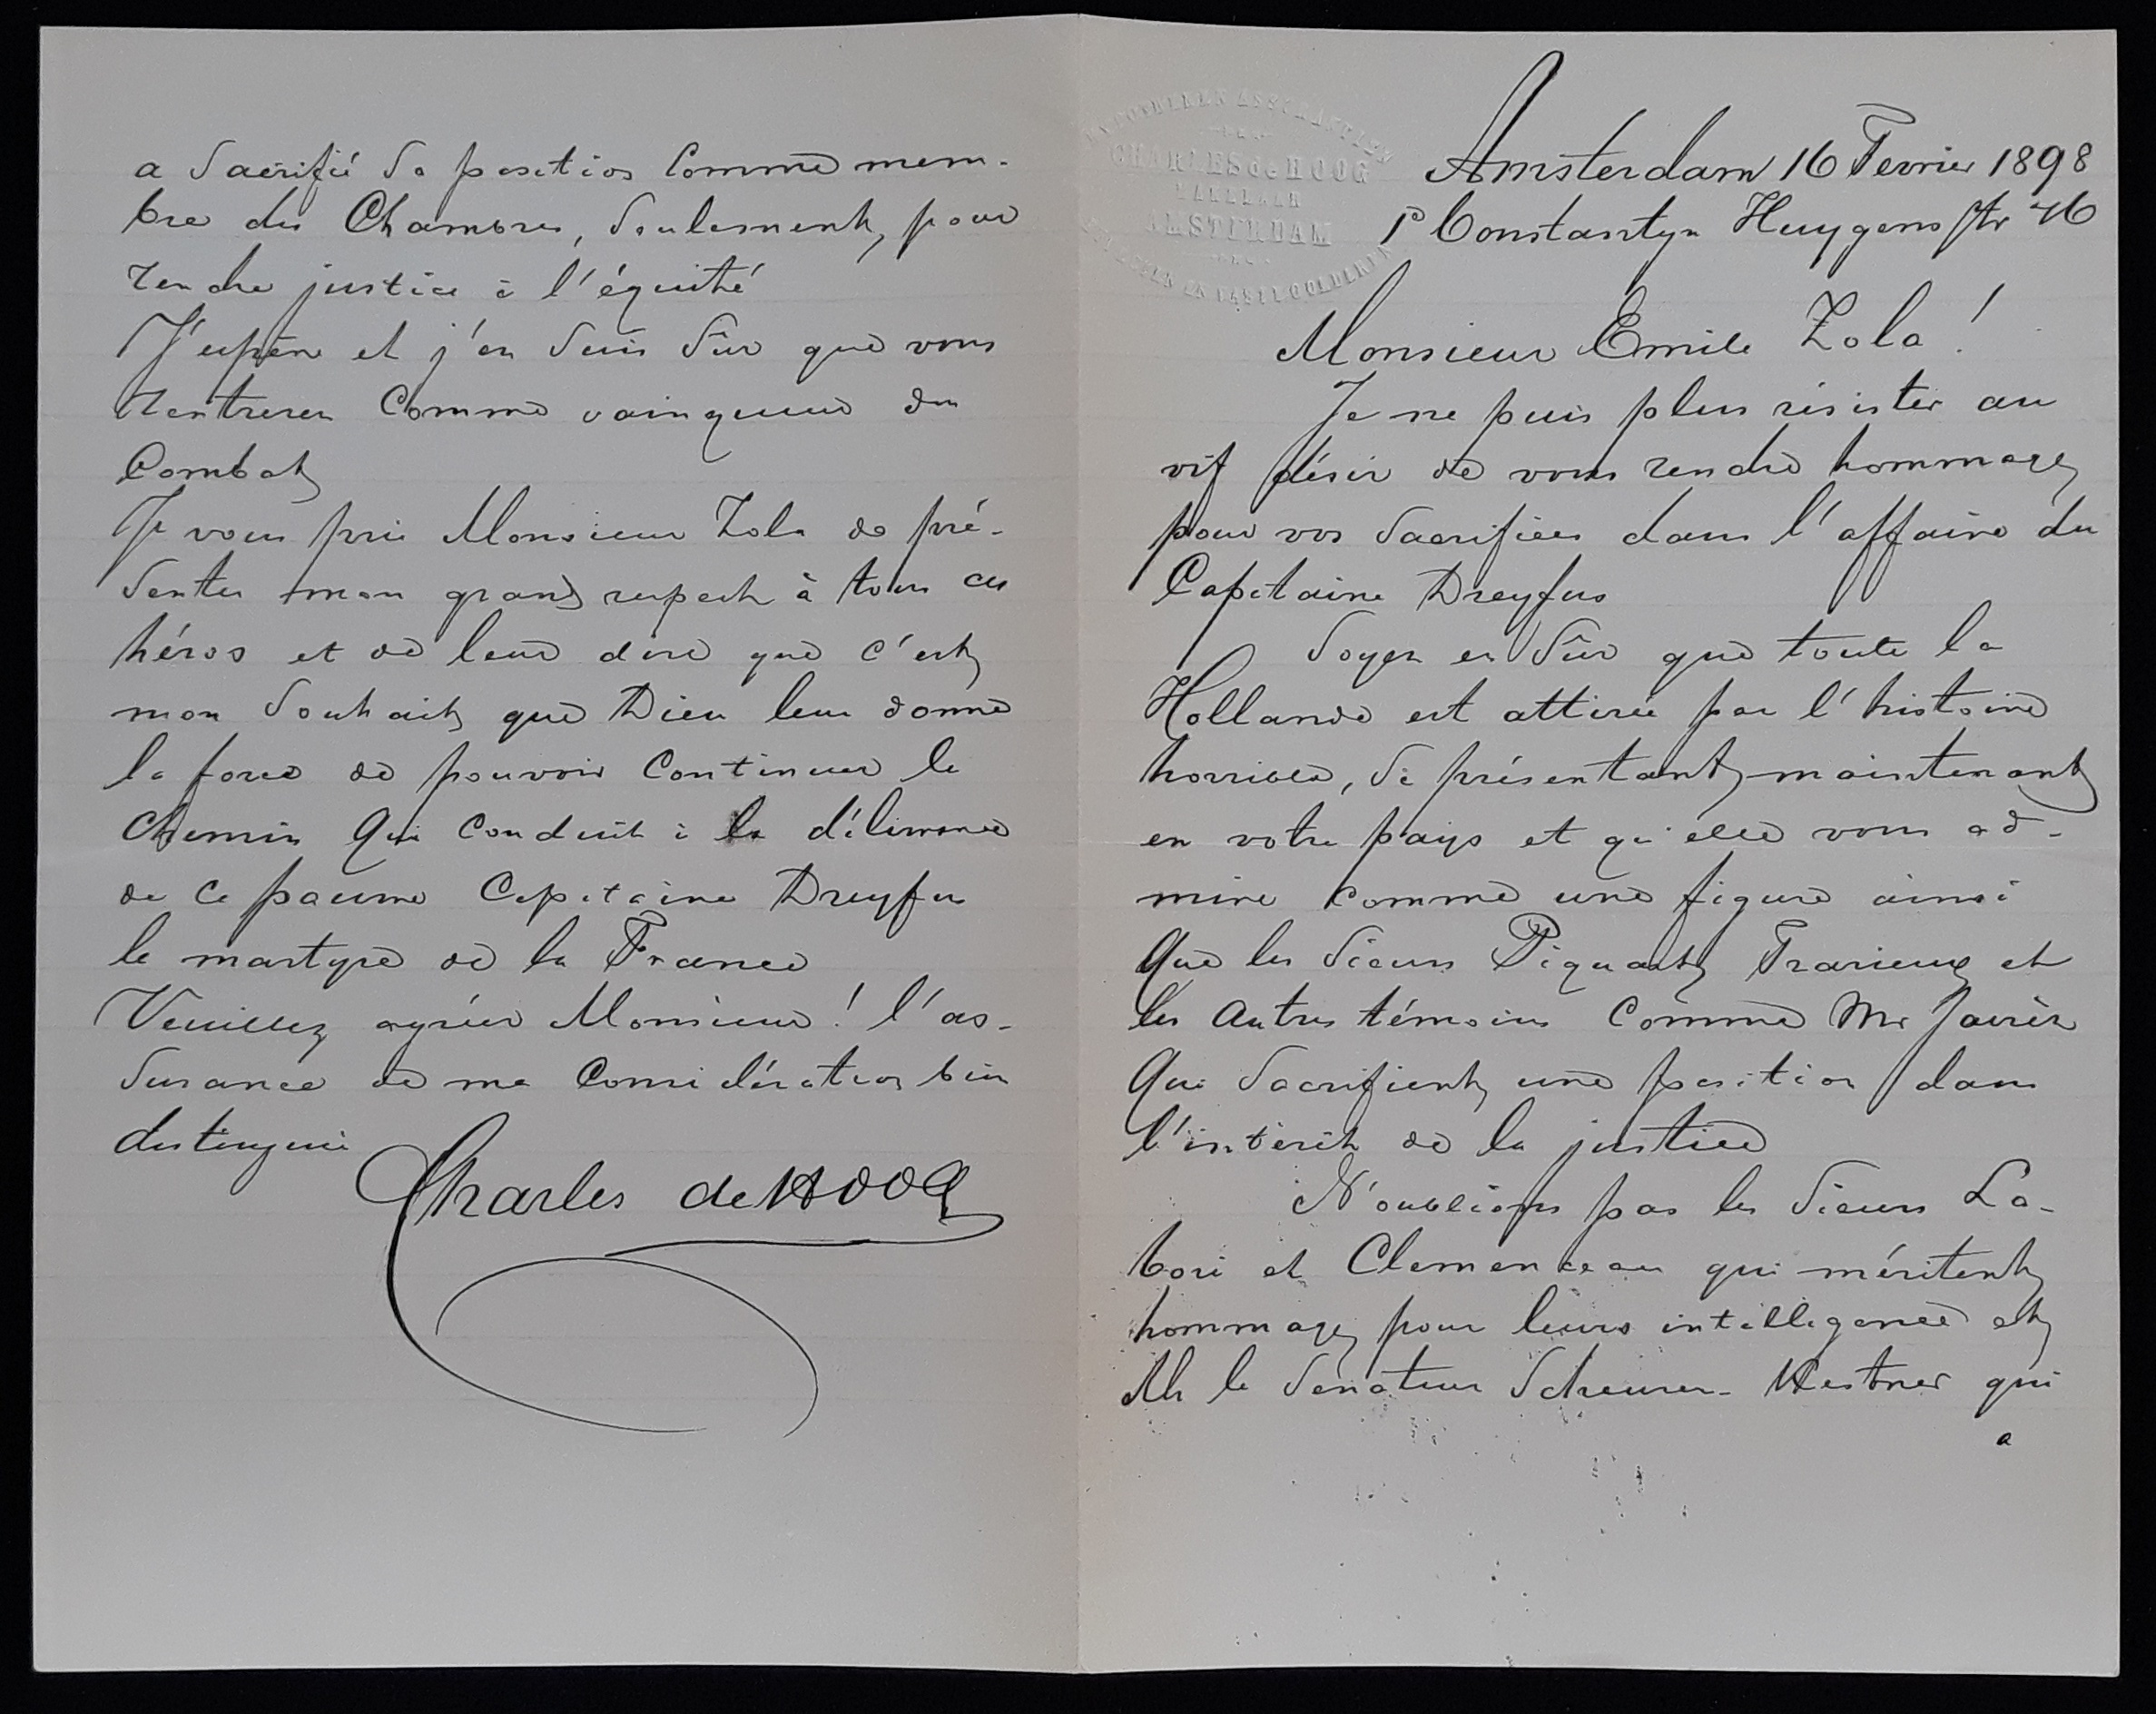 CHARLES de HOOG
AMSTERDAM
Amsterdam 16 Fevrier 1898
1e Constantyn Huygens Str 46
Monsieur Emile Zola!
Je ne puis plus résister au
vif désir de vous rendre hommage
pour vos sacrifices dans l'affaire du
Capitaine Dreyfus
Soyez en sûr que toute la
Hollande est attirée par l'histoire
horrible, se présentant maintenant
en votre pays et qu'elle vous ad-
mire comme une figure ainsi
que les sieurs Piquart, Trarieux et
les autres témoins comme Mr Jaurès
qui sacrifient une position dans
l'intérêt de la justice
N'oublions pas les sieurs La-
bori et Clemenceau qui méritent
hommage pour leurs intelligence et
Mr le Senateur Scheurer-Kestner qui
a
a sacrifié sa position comme mem-
bre des Chambres, seulement, pour
rendre justice à l'équité
J'espère et j'en suis sûr que vous
rentrerez comme vainqueur du
Combat
Je vous prie Monsieur Zola de pré-
senter mon grand respect à tous ces
héros et de leur dire que c'est
mon souhait que Dieu leur donne
la force de pouvoir continuer le
chemin qui conduit à la délivrance
de ce pauvre Capitaine Dreyfus
le martyre de la France
Veuillez agréer Monsieur! l'as-
surance de ma considération bien
distinguée
Charles de HOOG